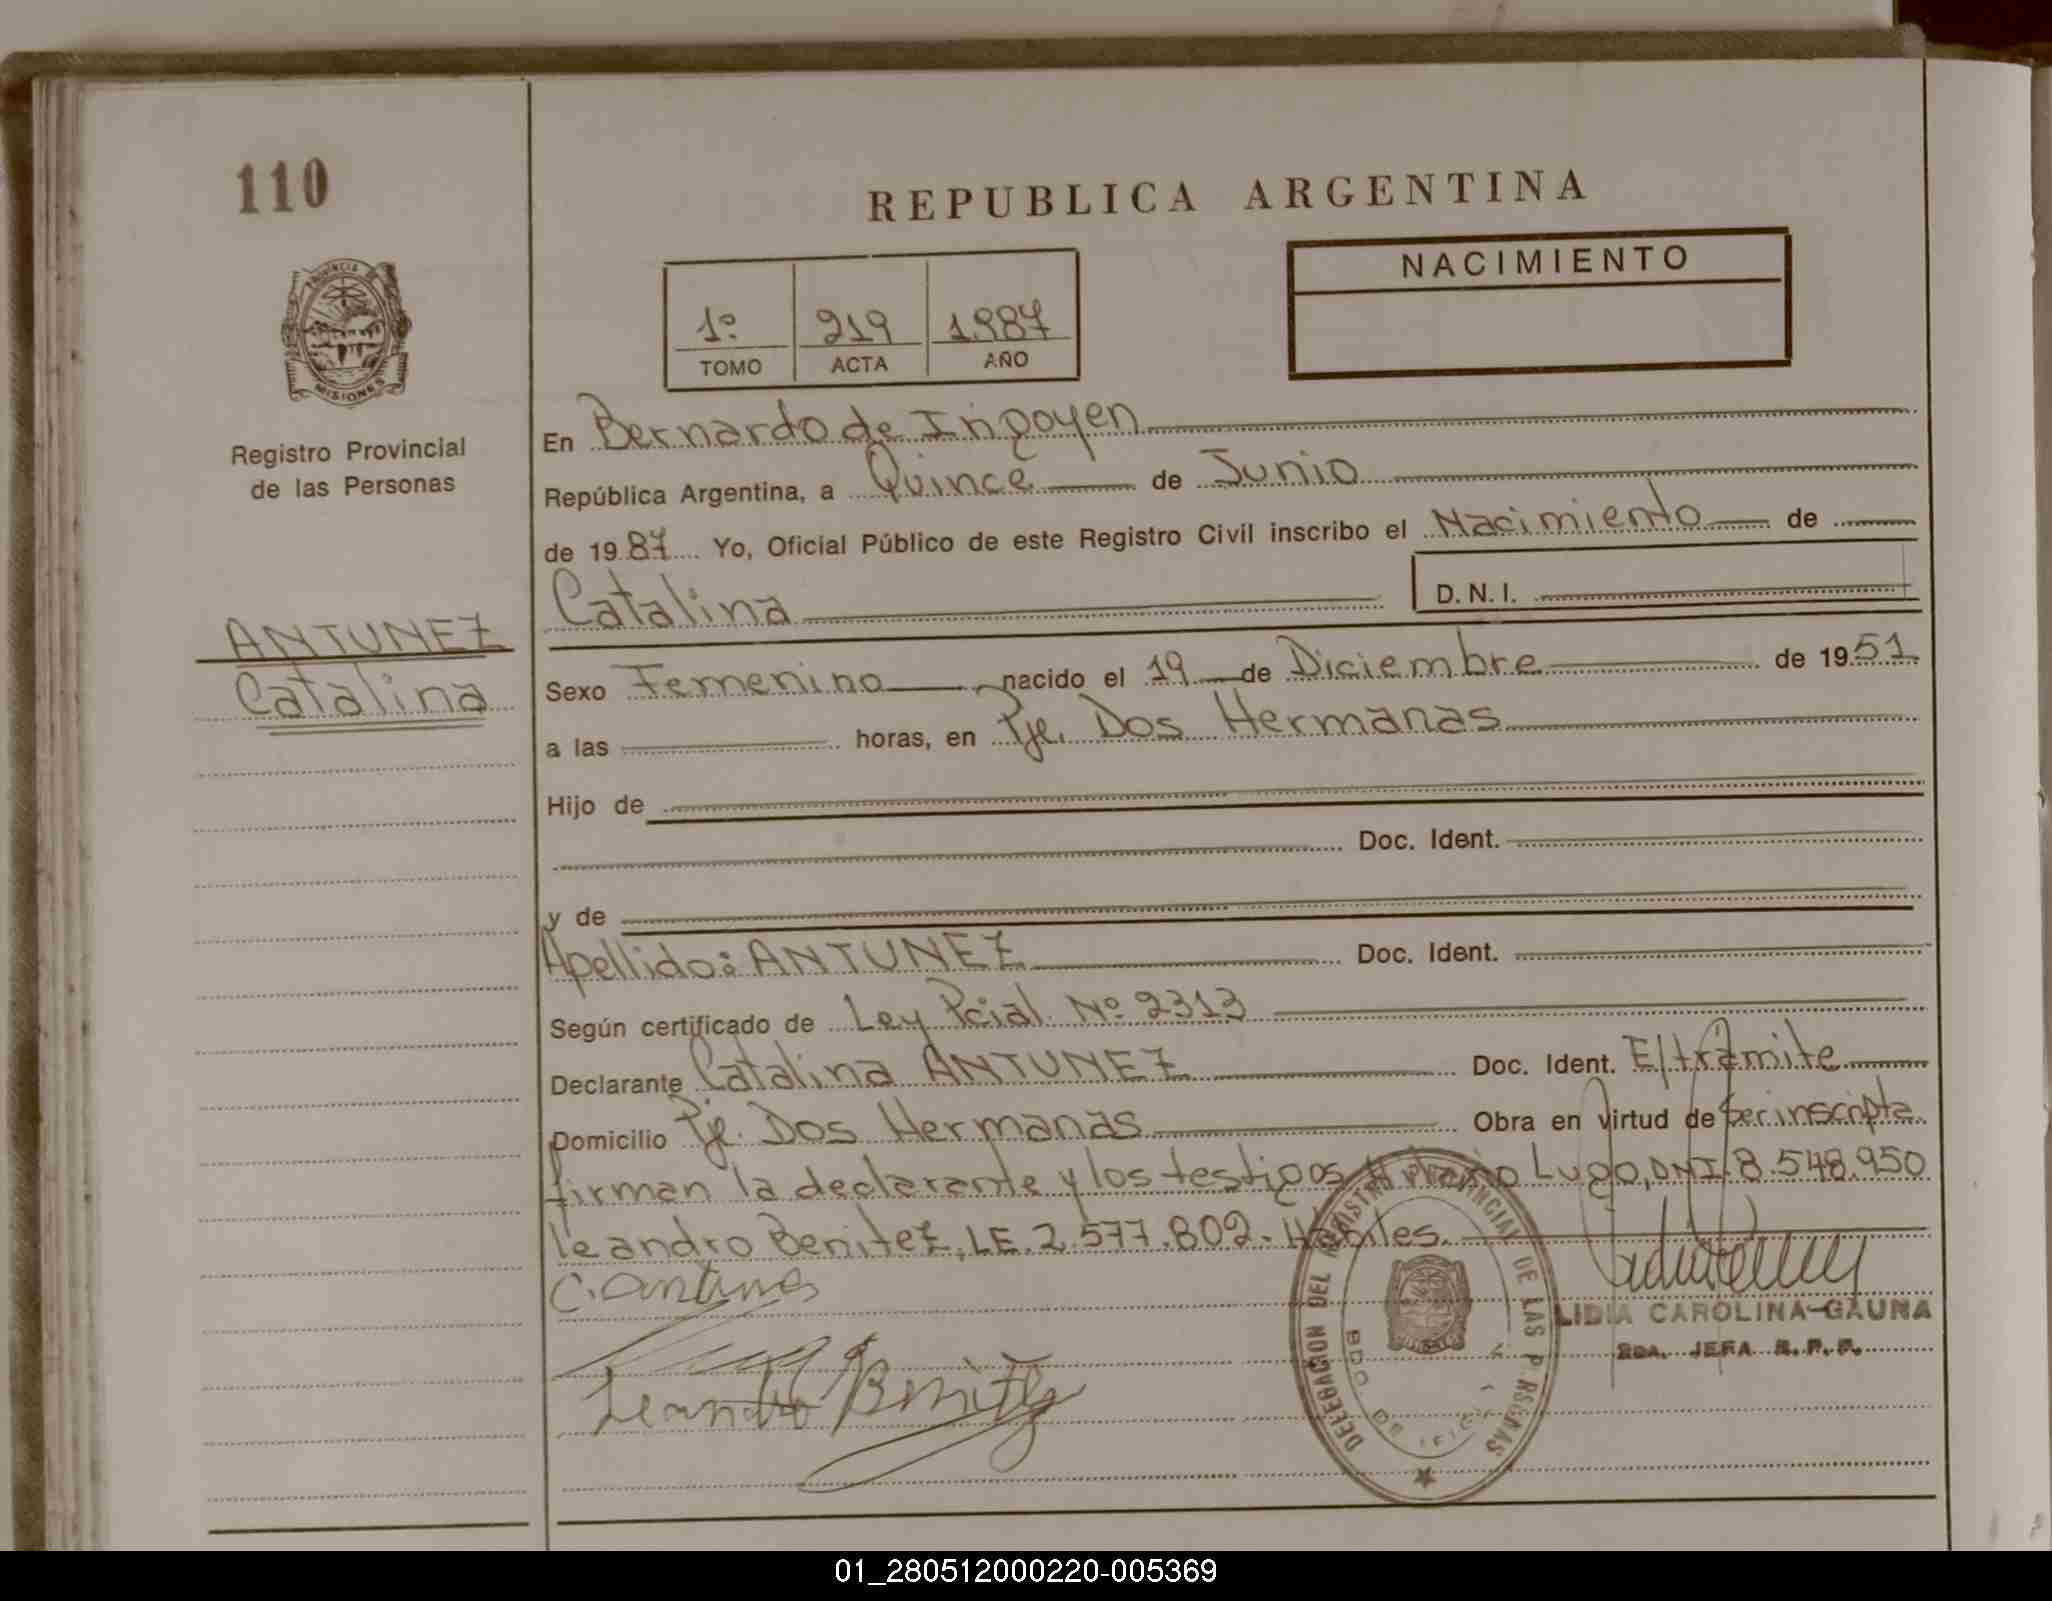 110
REPUBLICA ARGENTINA
NACIMIENTO
1º 219 1.987
TOMO ACTA AÑO
PROVINCIA DE MISIONES
Registro Provincial
de las Personas
ANTUNEZ
Catalina
En Bernardo de Irigoyen
República Argentina, a Quince de Junio
de 1987 Yo, Oficial Público de este Registro Civil inscribo el Nacimiento de
Catalina D.N.I.
Sexo Femenino nacido el 19 de Diciembre de 1951
a las horas, en Pje. Dos Hermanas
Hijo de
Doc. Ident.
y de
Apellido: ANTUNEZ Doc. Ident.
Según certificado de Ley Pcial. Nº 2313
Declarante Catalina ANTUNEZ Doc. Ident. E/trámite
Domicilio Pje. Dos Hermanas Obra en virtud de ser inscripta
firman la declarante y los testigos Lugo, DNI. 8.548.950
Leandro Benitez, LE. 2.577.802. Hábiles.
C. Antunes
Leandro Benitez
DELEGACION DEL REGISTRO PROVINCIAL DE LAS PERSONAS
BDO. DE
LIDIA CAROLINA GAUNA
2DA. JEFA R. P. P.
01_280512000220-005369